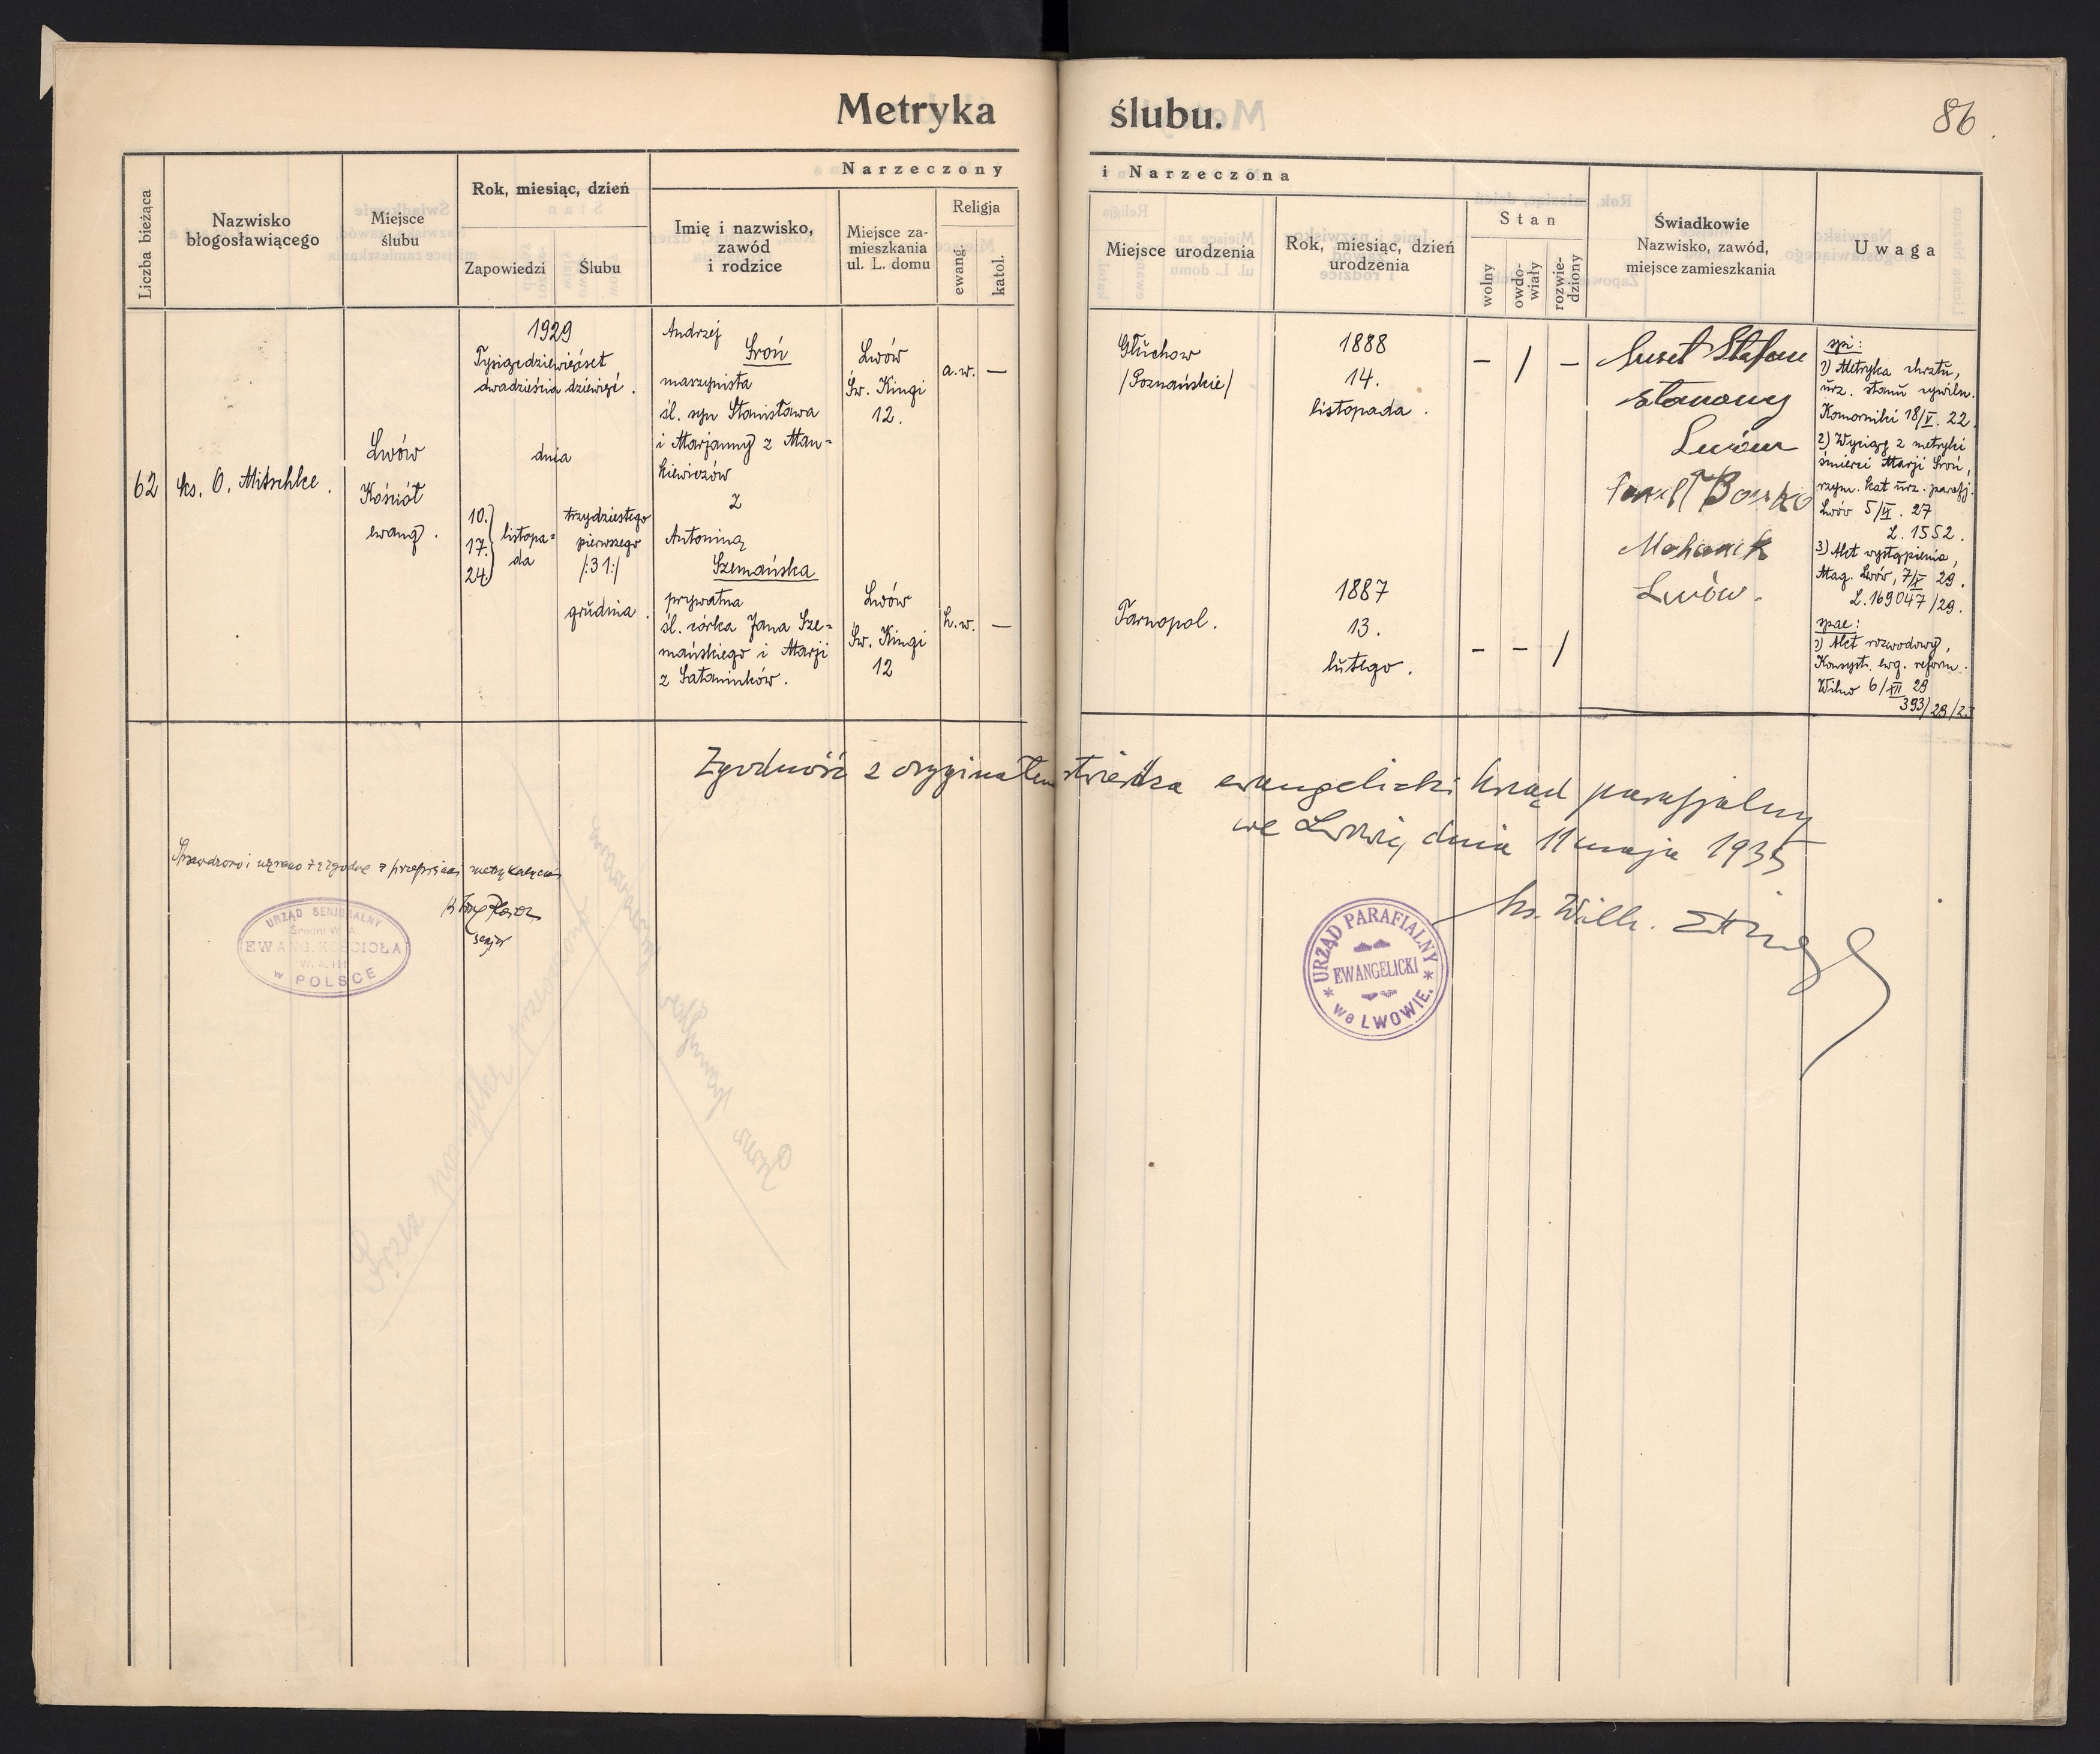 Metryka ślubu.
86
Liczba bieżąca
Nazwisko
błogosławiącego
Miejsce
ślubu
Rok, miesiąc, dzień
Zapowiedzi
Ślubu
Narzeczony
Imię i nazwisko,
zawód
i rodzice
Miejsce za-
mieszkania
ul. L. domu
Religja
ewang.
katol.
i Narzeczona
Miejsce urodzenia
Rok, miesiąc, dzień
urodzenia
Stan
wolny
owdo-
wiały
rozwie-
dziony
Świadkowie
Nazwisko, zawód,
miejsce zamieszkania
Uwaga
62
ks. O. Mitschke.
Lwów
Kościół
ewang.
1929
Tysiącdziewięćset
dwadzieścia dziewięć.
dnia
10.
17.
24.
listopa=
da
trzydziestego
pierwszego
/:31:/
grudnia.
Andrzej
Sroń
maszynista
śl. syn Stanisława
i Marjanny z Man=
kiewiczów
z
Antoniną
Szemańska
prywatna
śl. córka Jana Sze=
mańskiego i Marji
z Sataninków.
Lwów
Św. Kingi
12.
Lwów
Św. Kingi
12
a.w.
—
h.w.
—
Głuchow
/Poznańskie/
Tarnopol.
1888
14.
listopada.
1887
13.
lutego.
– / –
– – /
Stefan
Lwów
Mehanik
Lwów.
spi:
1) Metryka chrztu,
urz. stanu cywiln.
Komorniki 18/V. 22.
2) Wyciąg z metryki
śmierci Marji Sroń,
rzym. kat urz. parafj.
Lwów 5/VI. 27
L. 1552.
3) Akt wystąpienia,
Mag. Lwów, 7/X 29.
L. 169047/29.
spae:
1) Akt rozwodowy,
Konsyst. ewg. reform.
Wilno 6/XII 29
393/29/23
Zgodność z oryginałem stwierdza ewangelicki Urząd parafjalny
we Lwowie, dnia 11 maja 1935
Ks. Wilh.
URZĄD PARAFIALNY
EWANGELICKI
we LWOWIE.
Sprawdzono i uznano za zgodne z przepisami metrykalnemi
senjor
URZĄD SENJORALNY
EWANG. KOŚCIOŁA
w POLSCE
Przez pomyłkę przewrócono